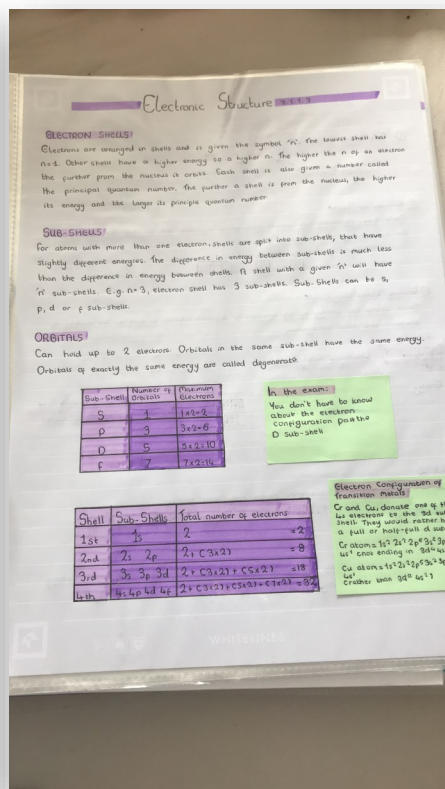 Electronic Structure 3.1.1.3
ELECTRON SHELLS:
Electrons are arranged in shells and is given the symbol 'n'. The lowest shell has
n=1. Other shells have a higher energy so a higher n. The higher the n of an electron
the further from the nucleus it orbits. Each shell is also given a number called
the principal quantum number. The further a shell is from the nucleus, the higher
its energy and the larger its principle quantum number
SUB-SHELLS:
For atoms with more than one electron, shells are split into sub-shells, that have
slightly different energies. The difference in energy between sub-shells is much less
than the difference in energy between shells. A shell with a given 'n' will have
'n' sub-shells. E.g. n=3, electron shell has 3 sub-shells. Sub-Shells can be s,
p, d or f sub-shells.
ORBITALS:
Can hold up to 2 electrons. Orbitals in the same sub-shell have the same energy.
Orbitals of exactly the same energy are called degenerate.
Sub-Shell Number of Orbitals Maximum Electrons
S 1 1x2=2
P 3 3x2=6
D 5 5x2=10
F 7 7x2=14
In the exam:
You don't have to know
about the electron
configuration past the
D sub-shell
Shell Sub-Shells Total number of electrons
1st 1s 2 =2
2nd 2s 2p 2+(3x2) =8
3rd 3s 3p 3d 2+(3x2)+(5x2) =18
4th 4s 4p 4d 4f 2+(3x2)+(5x2)+(7x2)=32
Electron Configuration of
Transition metals
Cr and Cu, donate one of th
4s electrons to the 3d su
shell. They would rather h
a full or half-full d sup
Cr atom = 1s² 2s² 2p⁶ 3s² 3p
4s¹ (not ending in 3d⁴ 4s
Cu atom = 1s² 2s² 2p⁶ 3s² 3p
4s¹
(rather than 3d⁹ 4s²)
WHITELINES